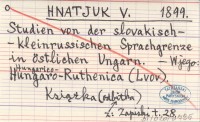 HNATJUK V. 1899.
Studien von der slovakisch-
-kleinrussischen Sprachgrenze
in östlichen Ungarn. –
Hungarico-
Hungaro-Ruthenica (Lvov).
Książka (odbitka)
z. Zapiski t. 28